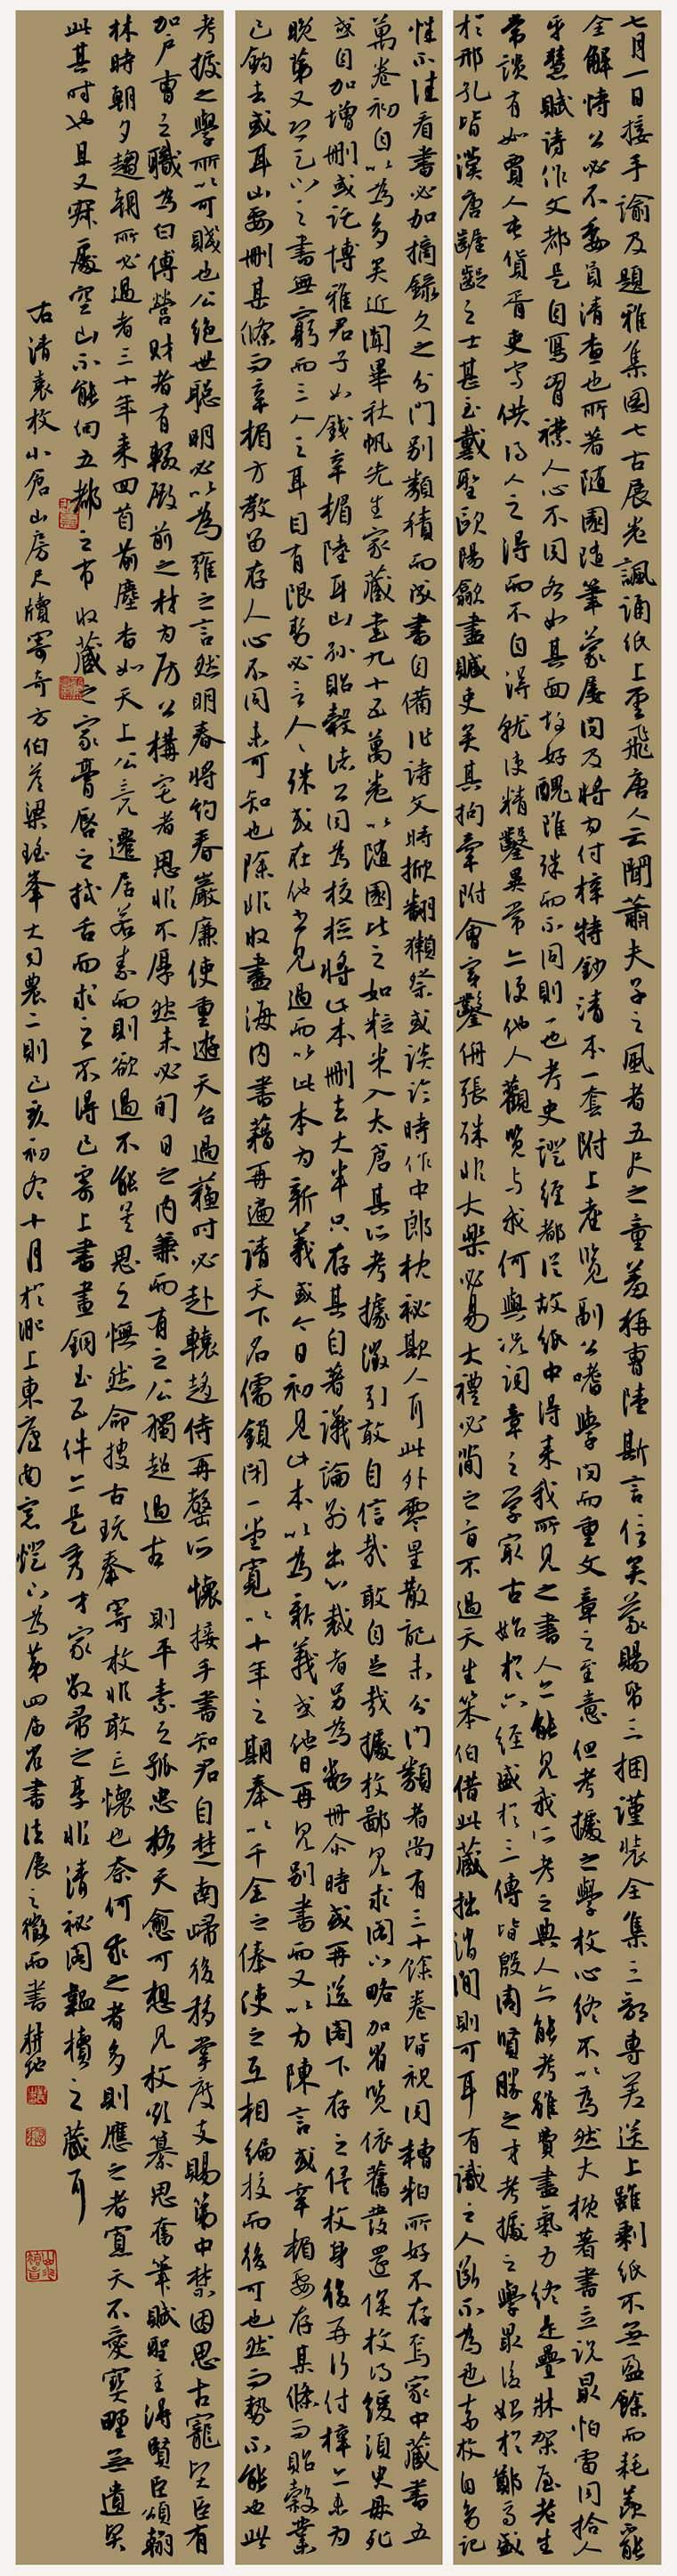 七月一日接手諭及題雅集圖七古展卷諷誦紙上雲飛唐人云聞蕭夫子之風者五尺之童羞稱曹陸斯言信矣蒙賜帋三捆謹裝全集三部專差送上雖剩紙不無盈餘而耗羨
全解恃公必不委員清查也所著隨園隨筆蒙屢問及將為付梓特鈔清本一套附上產覽副公嗜學問而重文章之至意但考據之學枚心終不以為然大概著書立說最怕雷同拾人
牙慧賦詩作文都是自寫胸襟人心不同各如其面故好醜雖殊而不同則一也考史證經都從故紙中得來我所見之書人亦能見我所考之典人亦能考雖費盡氣力終是疊牀架屋老生
常談有如賈人屯貨胥吏寫供得人之得而不自得就使精鑿異常亦便他人觀覽与我何與況詞章之學最古始於六經盛於三傳皆殷周賢勝之才考據之學最後始於鄭馬盛
於邢孔皆漢唐齷齪之士甚至戴聖歐陽歙盡贓吏矣其拘牽附會穿鑿侜張殊非大樂必易大禮必簡之旨不過天生笨伯借此藏拙消閒則可耳有識之人斷不為也青枚自多記
性不佳看書必加摘錄久之分門別類積而成書自備作詩文時掀翻獺祭或談論時作中郎枕祕欺人耳此外零星散記未分門類者尚有三十餘卷皆視同糟粕所好不存焉家中藏書五
萬卷初自以為多矣近聞畢秋帆先生家藏書九十五萬卷以隨園比之如粒米入太倉其所考據徵引敢自信哉敢自足哉據枚鄙見求閣下略加省覽依舊發還俟枚得緩須臾毋死
或自加增刪或託博雅君子如錢辛楣陸耳山孫貽穀諸公同為校核將此本刪去大半只存其自著議論別出心裁者另為數冊爾時或再送閣下存之俟枚身後再行付梓亦未為
晚第又思天下之書無窮而三人之耳目有限勢必言人人殊或在他書見過而以此本為新義或今日初見此本以為新義或他日再見別書而又以為陳言或辛楣要存某條而貽穀業
已鉤去或耳山要刪某條而辛楣方教留存人心不同未可知也除非收盡海內書籍再遍請天下名儒鎖閉一堂寬以十年之期奉以千金之俸使之互相編校而後可也然而勢不能也此
考據之學所以可賤也公絕世聰明必以為雍之言然明春將約春巖廉使重遊天台過蘇時必赴轅趨侍再罄所懷接手書知君自楚南歸後移掌度支賜第中禁因思古寵賢臣有
加戶曹之職為日傅營財者有輟殿前之材為房公構宅者恩非不厚然未必旬日之內兼而有之公獨超過古則平素之孤忠格天愈可想見枚欲纂思奮筆賦聖主得賢臣頌翰
林時朝夕趨朝所必過者三十年來回首前塵杳如天上公竟遷居若素而則欲過不能矣思之憮然命搜古玩奉寄枚非敢忘懷也奈何求之者多則應之者寡天不愛寶野無遺賢
此其時也且又寐處空山不能向五都之市收藏之家膏唇之拭舌而求之不得已寄上書畫銅玉五件亦是秀才家敝帚之享非清祕閣韞櫝之藏耳
右清袁枚小倉山房尺牘寄奇方伯答梁瑤峯大司農二則己亥初冬十月於淝上東廬南窗燈下為第四屆名書法展之徵而書